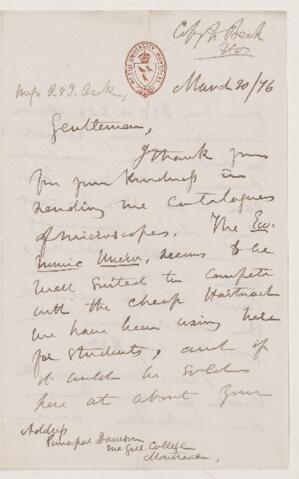 Copy to Beck
McGILL UNIVERSITY MONTREAL
March 20/76
Messrs R & J. Beck,
Gentlemen,
I thank you
for your kindness in
sending me catalogues
of microscopes. The Eco-
nomic Micro. seems to be
well suited to compete
with the cheap Hartnack
we have been using here
for students, and if
it could be sold
here at about your
Address
Principal Dawson
McGill College
Montreal.